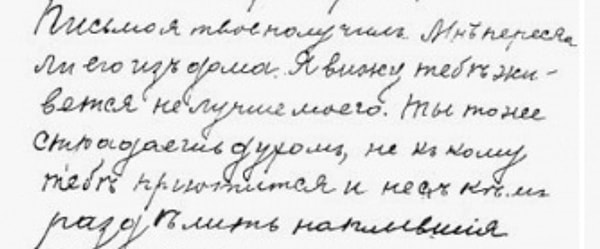 Письмо я твое получилъ. Мнѣ переся
ли его изъ дома. Я вижу тебѣ жи-
вется не лучше моего. Ты тоже
страдаешь духомъ, не къ кому
тебѣ приютится и не съ кѣмъ
раздѣлить наплывшія